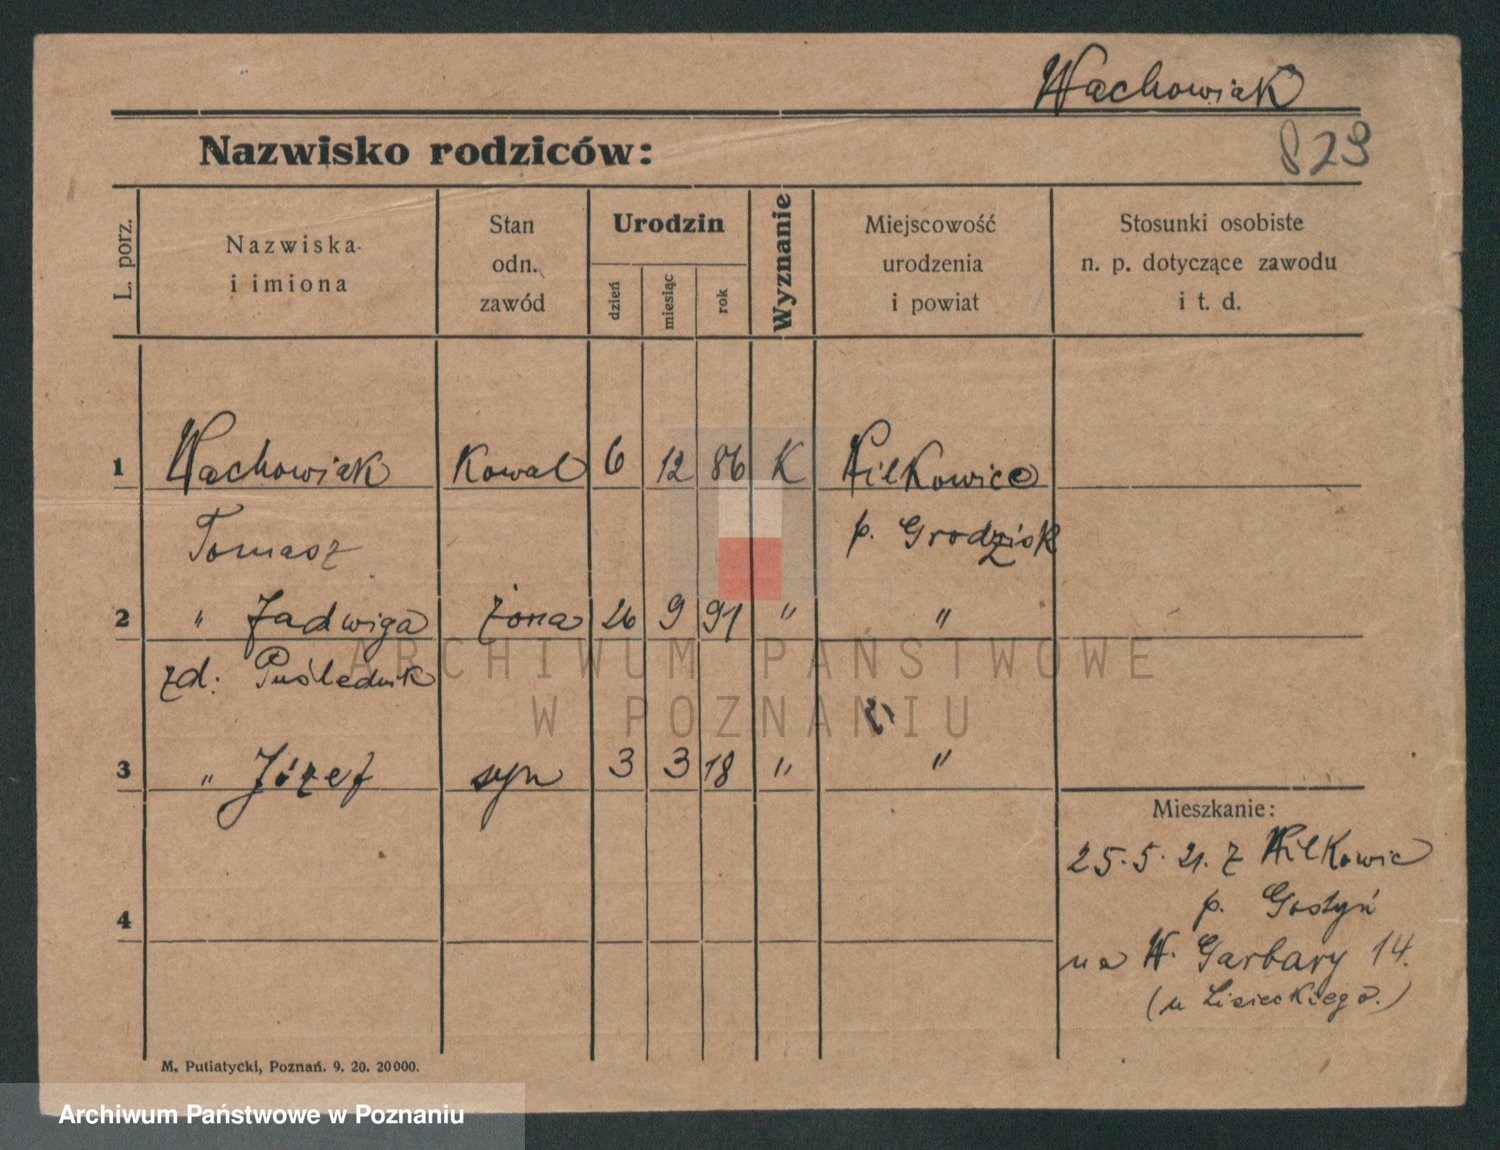 Wachowiak
Nazwisko rodziców:
829
L. porz.
Nazwiska
i imiona
Stan
odn.
zawód
Urodzin
dzień
miesiąc
rok
Wyznanie
Miejscowość
urodzenia
i powiat
Stosunki osobiste
n. p. dotyczące zawodu
i t. d.
1 Wachowiak Kowal 6 12 86 K Wilkowice
Tomasz p. Grodzisk
2 " Jadwiga żona 26 9 91 " "
zd. Poślednik
3 " Józef syn 3 3 18 " "
Mieszkanie:
25.5.21. z Wilkowic
p. Gostyń
4
na W. Garbary 14.
(u Lisieckiego.)
M. Putiatycki, Poznań. 9. 20. 20000.
ARCHIWUM PAŃSTWOWE
W POZNANIU
Archiwum Państwowe w Poznaniu